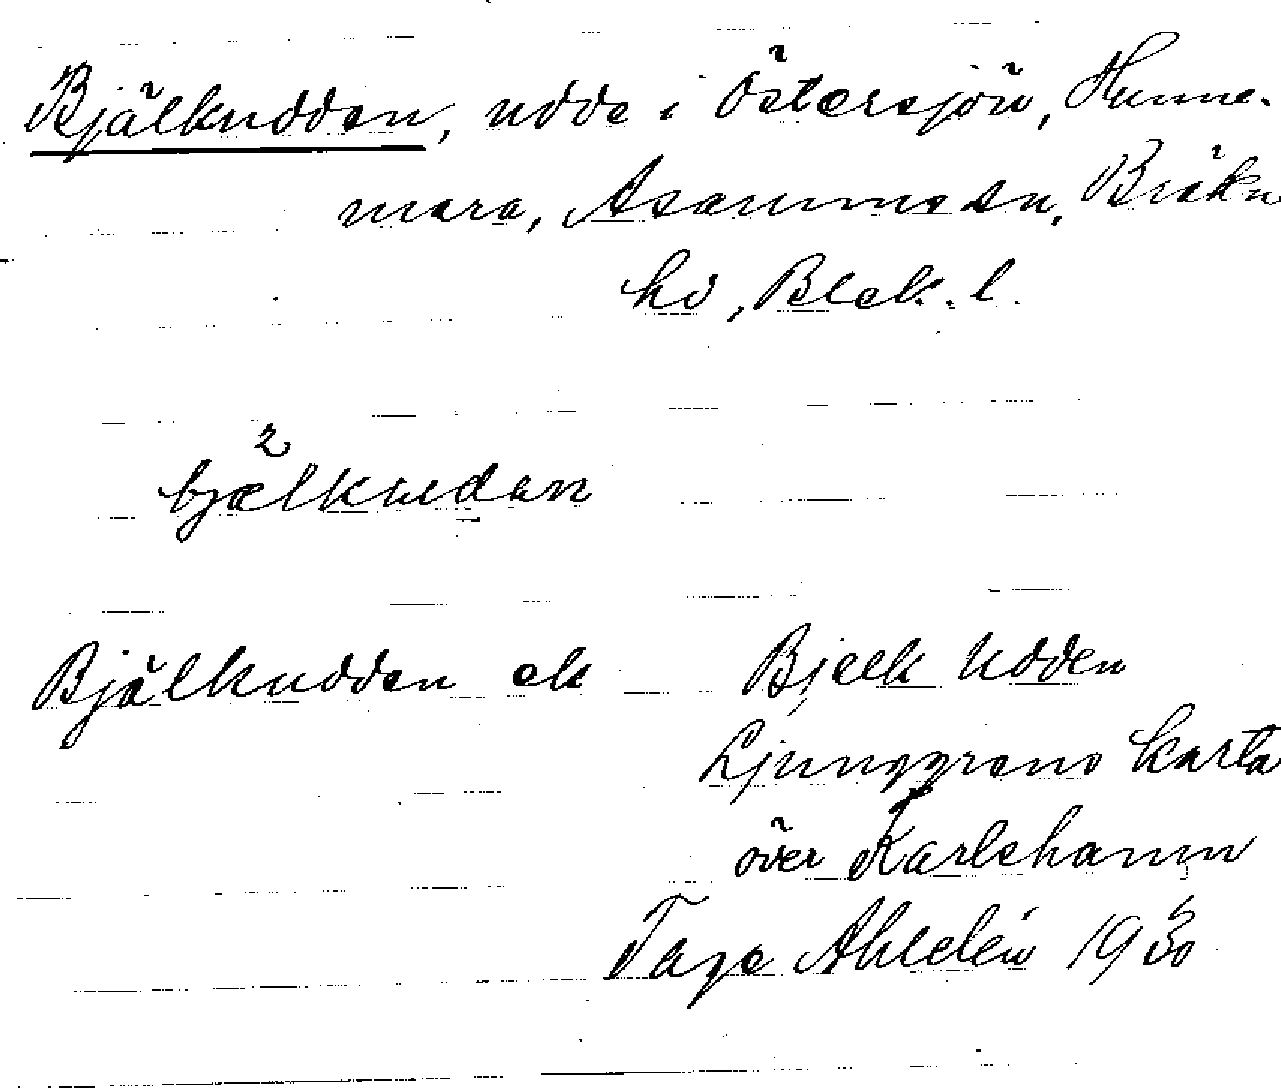 Bjälkudden, udde i Östersjön, Hunne-
mara, Asarums sn, Bräkn
hd, Blek. l.
2
bjælkudan
Bjälkudden ek Bjelk Udden
Ljunggrens karta
över Karlshamn
Tage Ahldén 1930